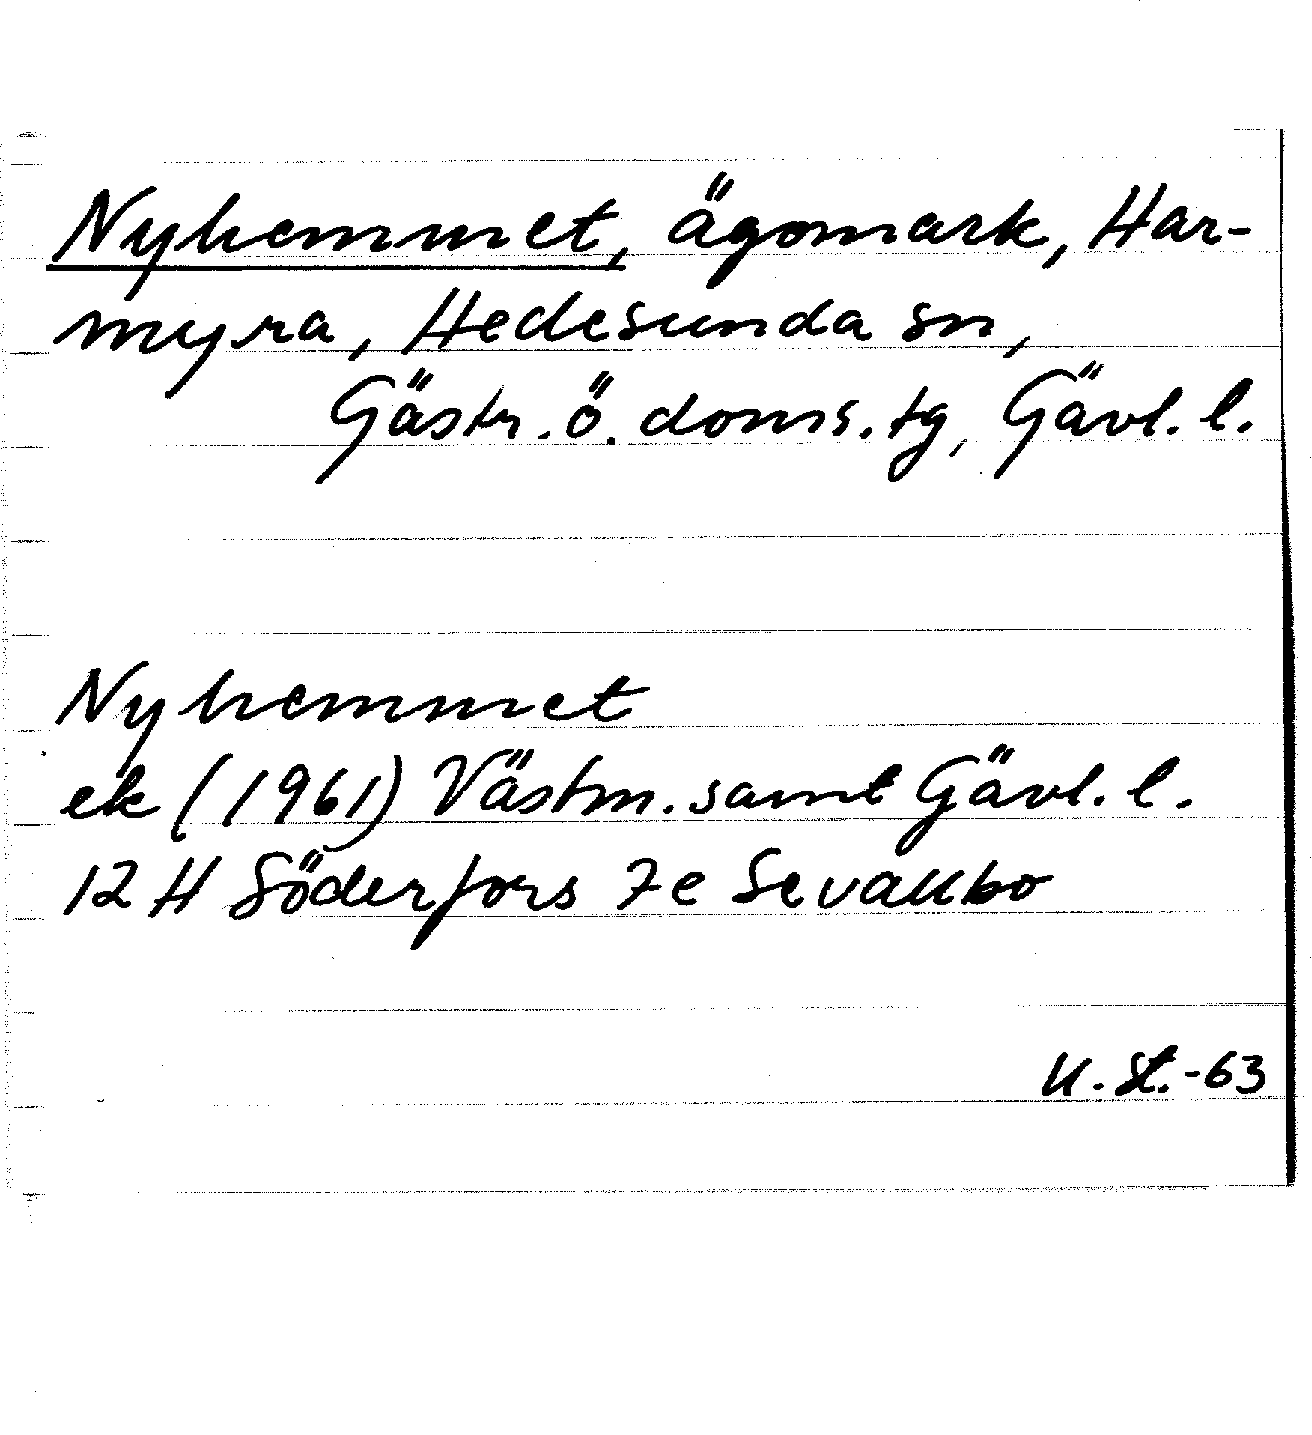 Nyhemmet, ägomark, Har-
myra, Hedesunda sn,
Gästr. ö. doms. tg, Gävl. l.
Nyhemmet
ek (1961) Västm. samt Gävl. l.
12 H Söderfors 7e Sevallbo
U. St. -63